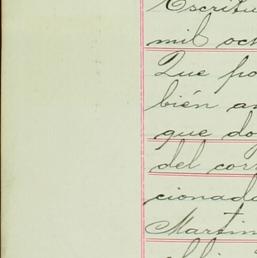 Escritu
mil och
Que po
bién an
que do
del cor
cionada
Martin